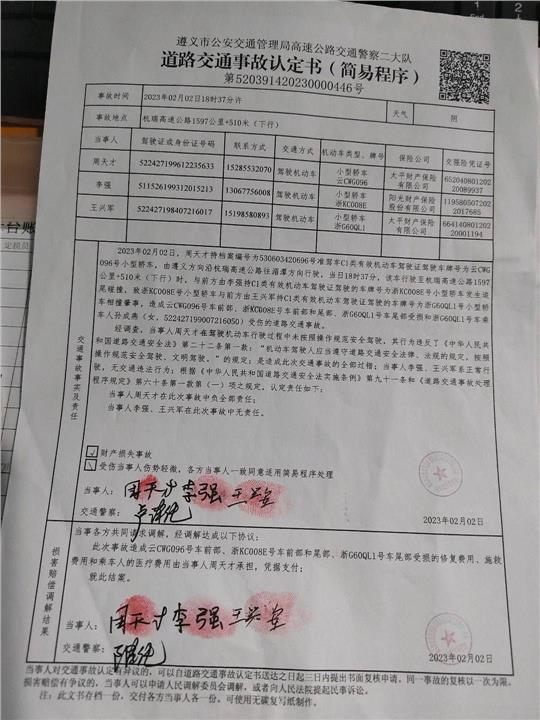 遵义市公安交通管理局高速公路交通警察二大队
道路交通事故认定书（简易程序）
第520391420230000446号
事故时间 2023年02月02日18时37分许 天气 阴
事故地点 杭瑞高速公路1597公里+510米（下行）
当事人 驾驶证或身份证号码 联系方式 交通方式 机动车类型、牌号 保险公司 交强险凭证号
周天才 522427199612235633 15285532070 驾驶机动车 小型轿车 云CWG096 太平财产保险有限公司 65204080120220089937
李强 511526199312015213 13067756008 驾驶机动车 小型轿车 浙KC008E 阳光财产保险股份有限公司 11958050720220217685
王兴军 522427198407216017 15198580893 驾驶机动车 小型轿车 浙G60QL1 太平财产保险有限公司 66414080120220001194
交通事故事实及责任
2023年02月02日，周天才持档案编号为530603420696号准驾车C1类有效机动车驾驶证驾驶车牌号为云CWG
096号小型轿车，由遵义方向沿杭瑞高速公路往湄潭方向行驶，当日18时37分，该车行驶至杭瑞高速公路1597
公里+510米（下行）时，与前方由李强持C1类有效机动车驾驶证驾驶的车牌号为浙KC008E号小型轿车发生追
尾碰撞，致浙KC008E号小型轿车与前方由王兴军持C1类有效机动车驾驶证驾驶的车牌号为浙G60QL1号小型轿
车相撞肇事，造成云CWG096号车前部、浙KC008E号车前部和尾部、浙G60QL1号车尾部受损和浙G60QL1号车乘
车人孙成燕（女，522427199007216050）受伤的道路交通事故。
经调查，当事人周天才在驾驶机动车行驶过程中未按照操作规范安全驾驶，其行为违反了《中华人民共
和国道路交通安全法》第二十二条第一款：“机动车驾驶人应当遵守道路交通安全法律、法规的规定，按照
操作规范安全驾驶、文明驾驶。”的规定；是造成此次交通事故的全部过错；当事人李强、王兴军系正常行
驶，无交通违法行为；根据《中华人民共和国道路交通安全法实施条例》第九十一条和《道路交通事故处理
程序规定》第六十条第一款第（一）项之规定，认定责任如下：
当事人周天才在此次事故中负全部责任；
当事人李强、王兴军在此次事故中无责任。
财产损失事故
受伤当事人伤势轻微，各方当事人一致同意适用简易程序处理
当事人：周天才 李强 王兴军
交通警察：
2023年02月02日
损害赔偿调解结果
当事各方共同请求调解，经调解达成以下协议：
此次事故造成云CWG096号车前部、浙KC008E号车前部和尾部、浙G60QL1号车尾部受损的修复费用、施救
费用和乘车人的医疗费用由当事人周天才承担，凭据支付；
就此结案。
当事人：周天才 李强 王兴军
交通警察：
2023年02月02日
当事人对交通事故认定有异议的，可以自道路交通事故认定书送达之日起三日内提出书面复核申请。同一事故的复核以一次为限。
损害赔偿有争议的，当事人可以申请人民调解委员会调解，或者向人民法院提起民事诉讼。
注：此文书存档一份，交付各方当事人各一份。可使用无碳复写纸制作。